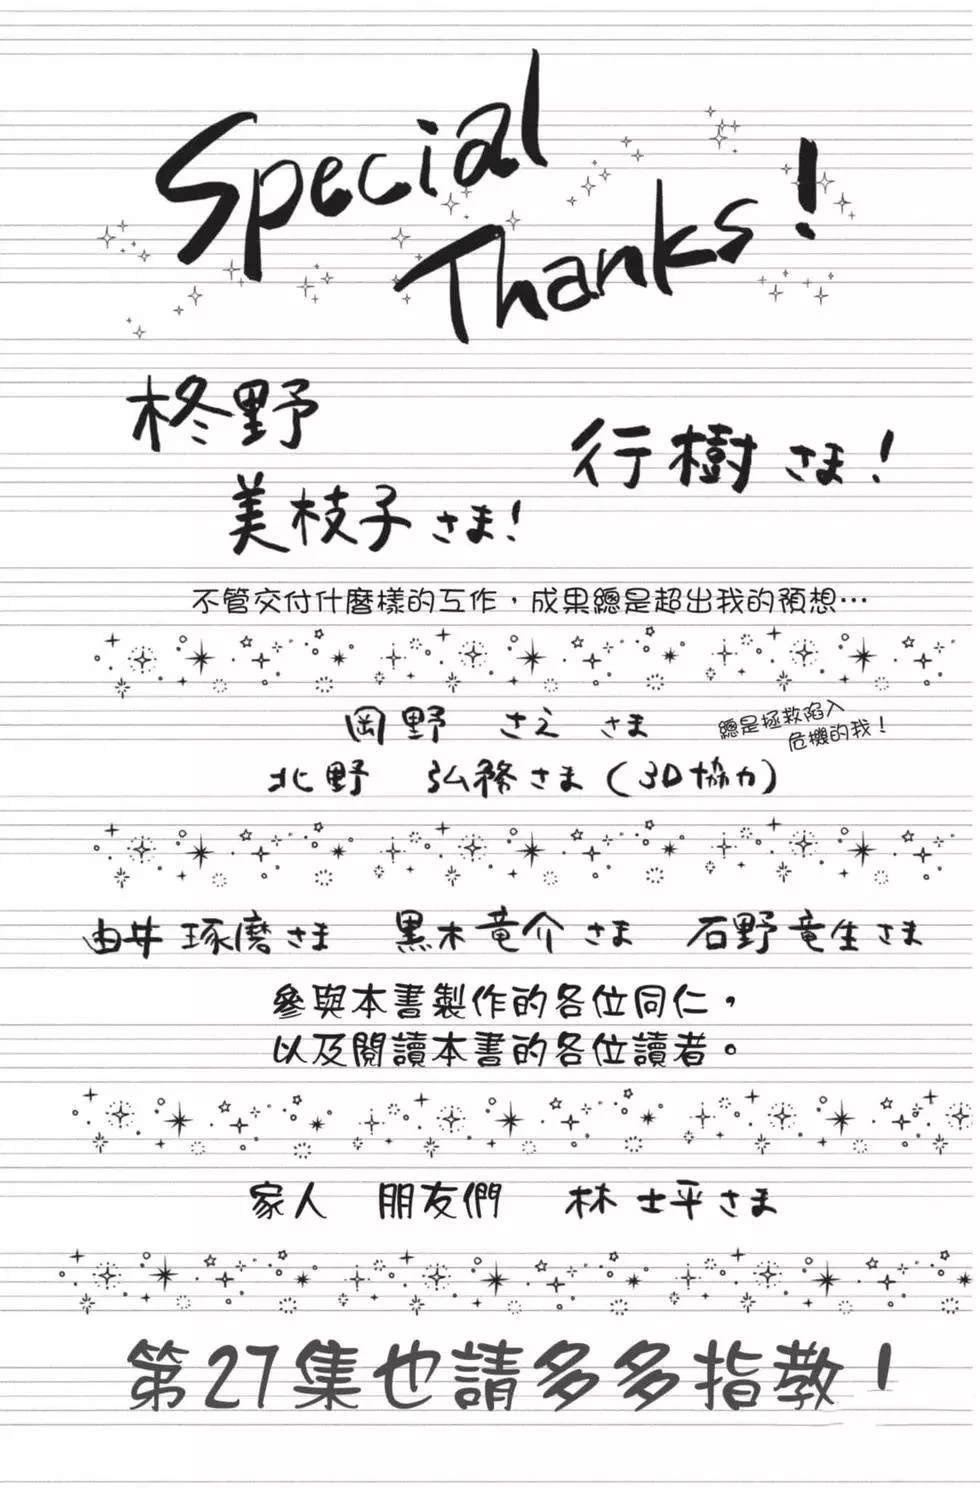 Special
Thanks!
柊野
美枝子さま!
行樹さま!
不管交付什麼樣的工作，成果總是超出我的預想⋯
岡野 さえ さま
總是拯救陷入
危機的我！
北野 弘務さま(3D協力)
由井 琢磨さま 黒木竜介さま 石野竜生さま
參與本書製作的各位同仁，
以及閱讀本書的各位讀者。
家人 朋友們 林士平さま
第27集也請多多指教！